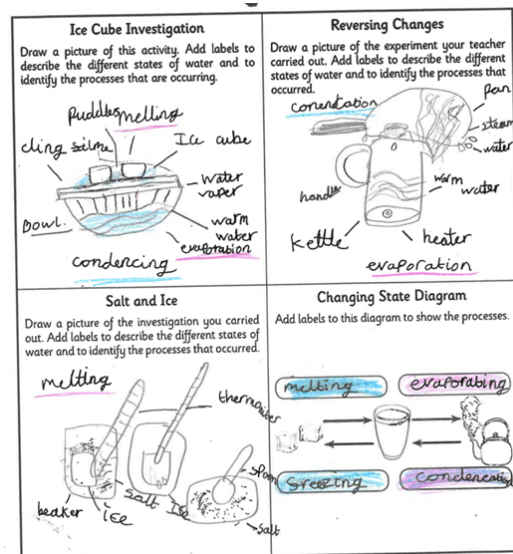 Ice Cube Investigation
Draw a picture of this activity. Add labels to
describe the different states of water and to
identify the processes that are occurring.
Puddles
melling
cling
Ice cube
water
vaper
Bowl.
warm
water
evaporation
condencing
Reversing Changes
Draw a picture of the experiment your teacher
carried out. Add labels to describe the different
states of water and to identify the processes that
occurred.
pan
steam
water
handle
warm
water
kettle
heater
evaporation
Salt and Ice
Draw a picture of the investigation you carried
out. Add labels to describe the different states of
water and to identify the processes that occurred.
melting
thermometer
spoon
salt
Ice
beaker
ice
salt
Changing State Diagram
Add labels to this diagram to show the processes.
melting
evaporabing
sreezing
condencation